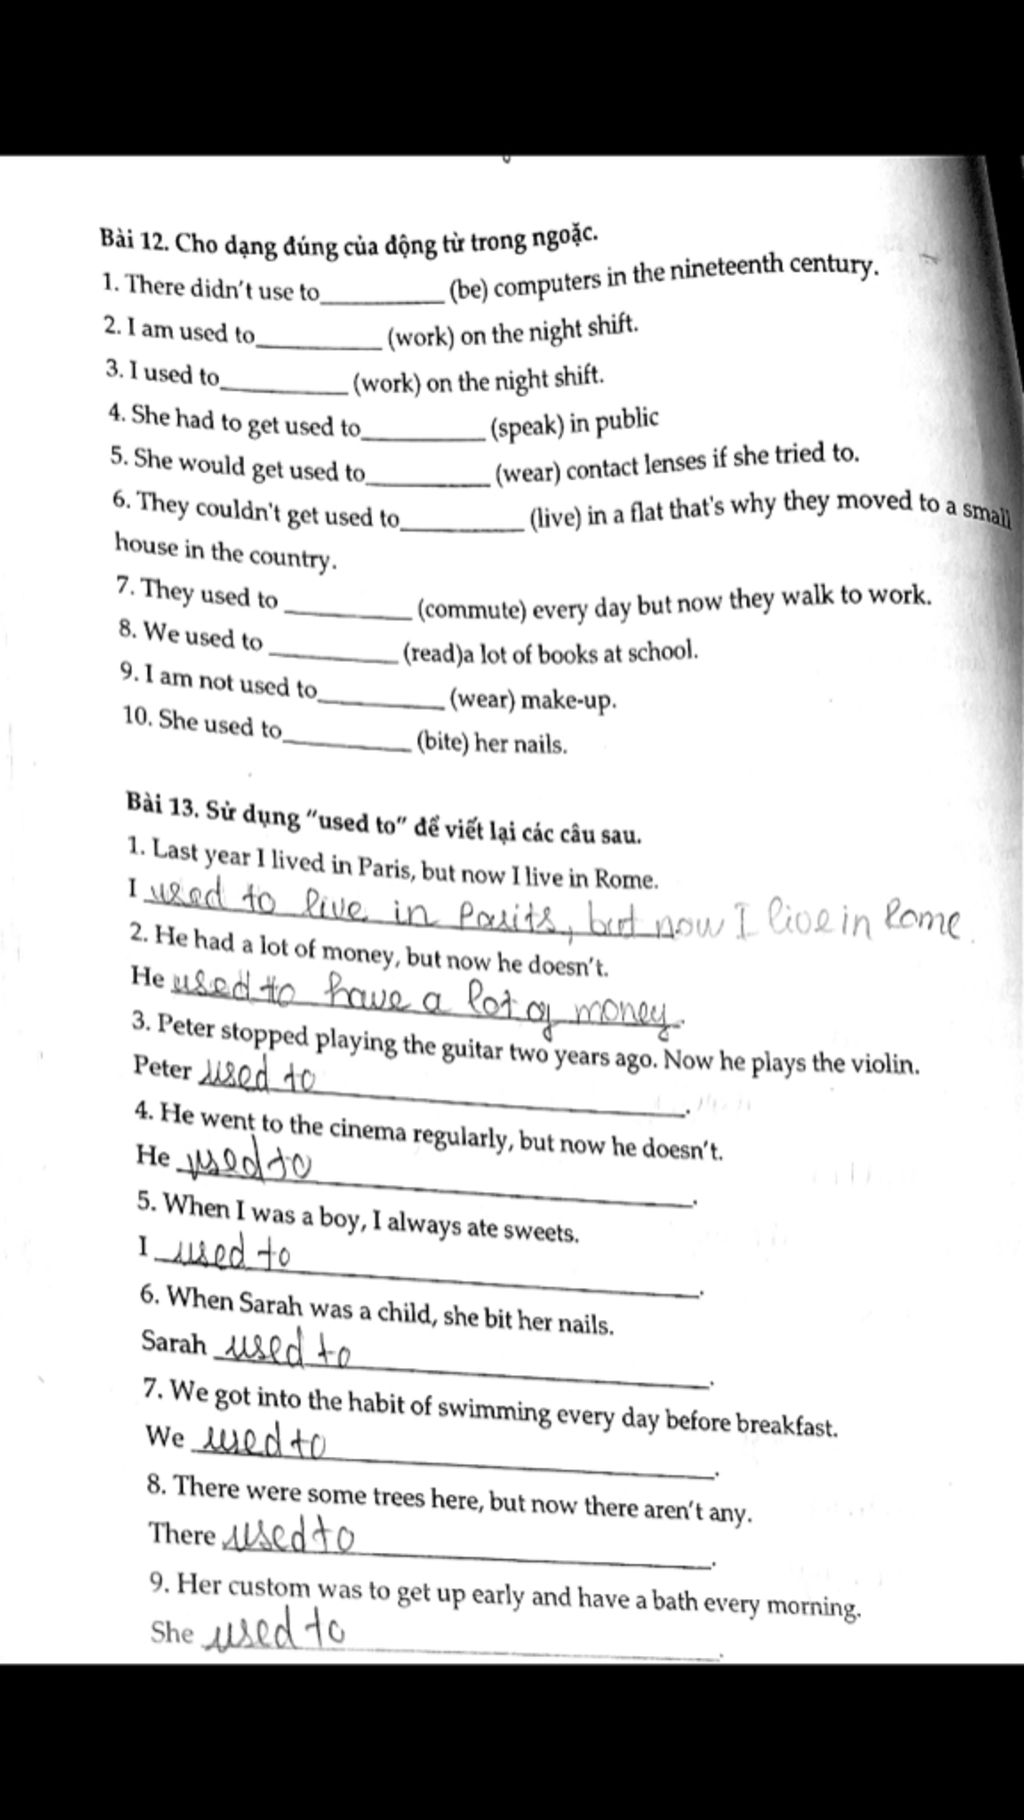 Bài 12. Cho dạng đúng của động từ trong ngoặc.
1. There didn't use to__________ (be) computers in the nineteenth century.
2. I am used to__________ (work) on the night shift.
3. I used to__________ (work) on the night shift.
4. She had to get used to__________ (speak) in public
5. She would get used to__________ (wear) contact lenses if she tried to.
6. They couldn't get used to__________ (live) in a flat that's why they moved to a small
house in the country.
7. They used to __________ (commute) every day but now they walk to work.
8. We used to __________ (read)a lot of books at school.
9. I am not used to__________ (wear) make-up.
10. She used to__________ (bite) her nails.
Bài 13. Sử dụng "used to" để viết lại các câu sau.
1. Last year I lived in Paris, but now I live in Rome.
I used to live in Parits, but now I live in Rome.
2. He had a lot of money, but now he doesn't.
He used to have a lot of money.
3. Peter stopped playing the guitar two years ago. Now he plays the violin.
Peter used to __________.
4. He went to the cinema regularly, but now he doesn't.
He used to __________.
5. When I was a boy, I always ate sweets.
I used to __________.
6. When Sarah was a child, she bit her nails.
Sarah used to __________.
7. We got into the habit of swimming every day before breakfast.
We used to __________.
8. There were some trees here, but now there aren't any.
There used to __________.
9. Her custom was to get up early and have a bath every morning.
She used to __________.